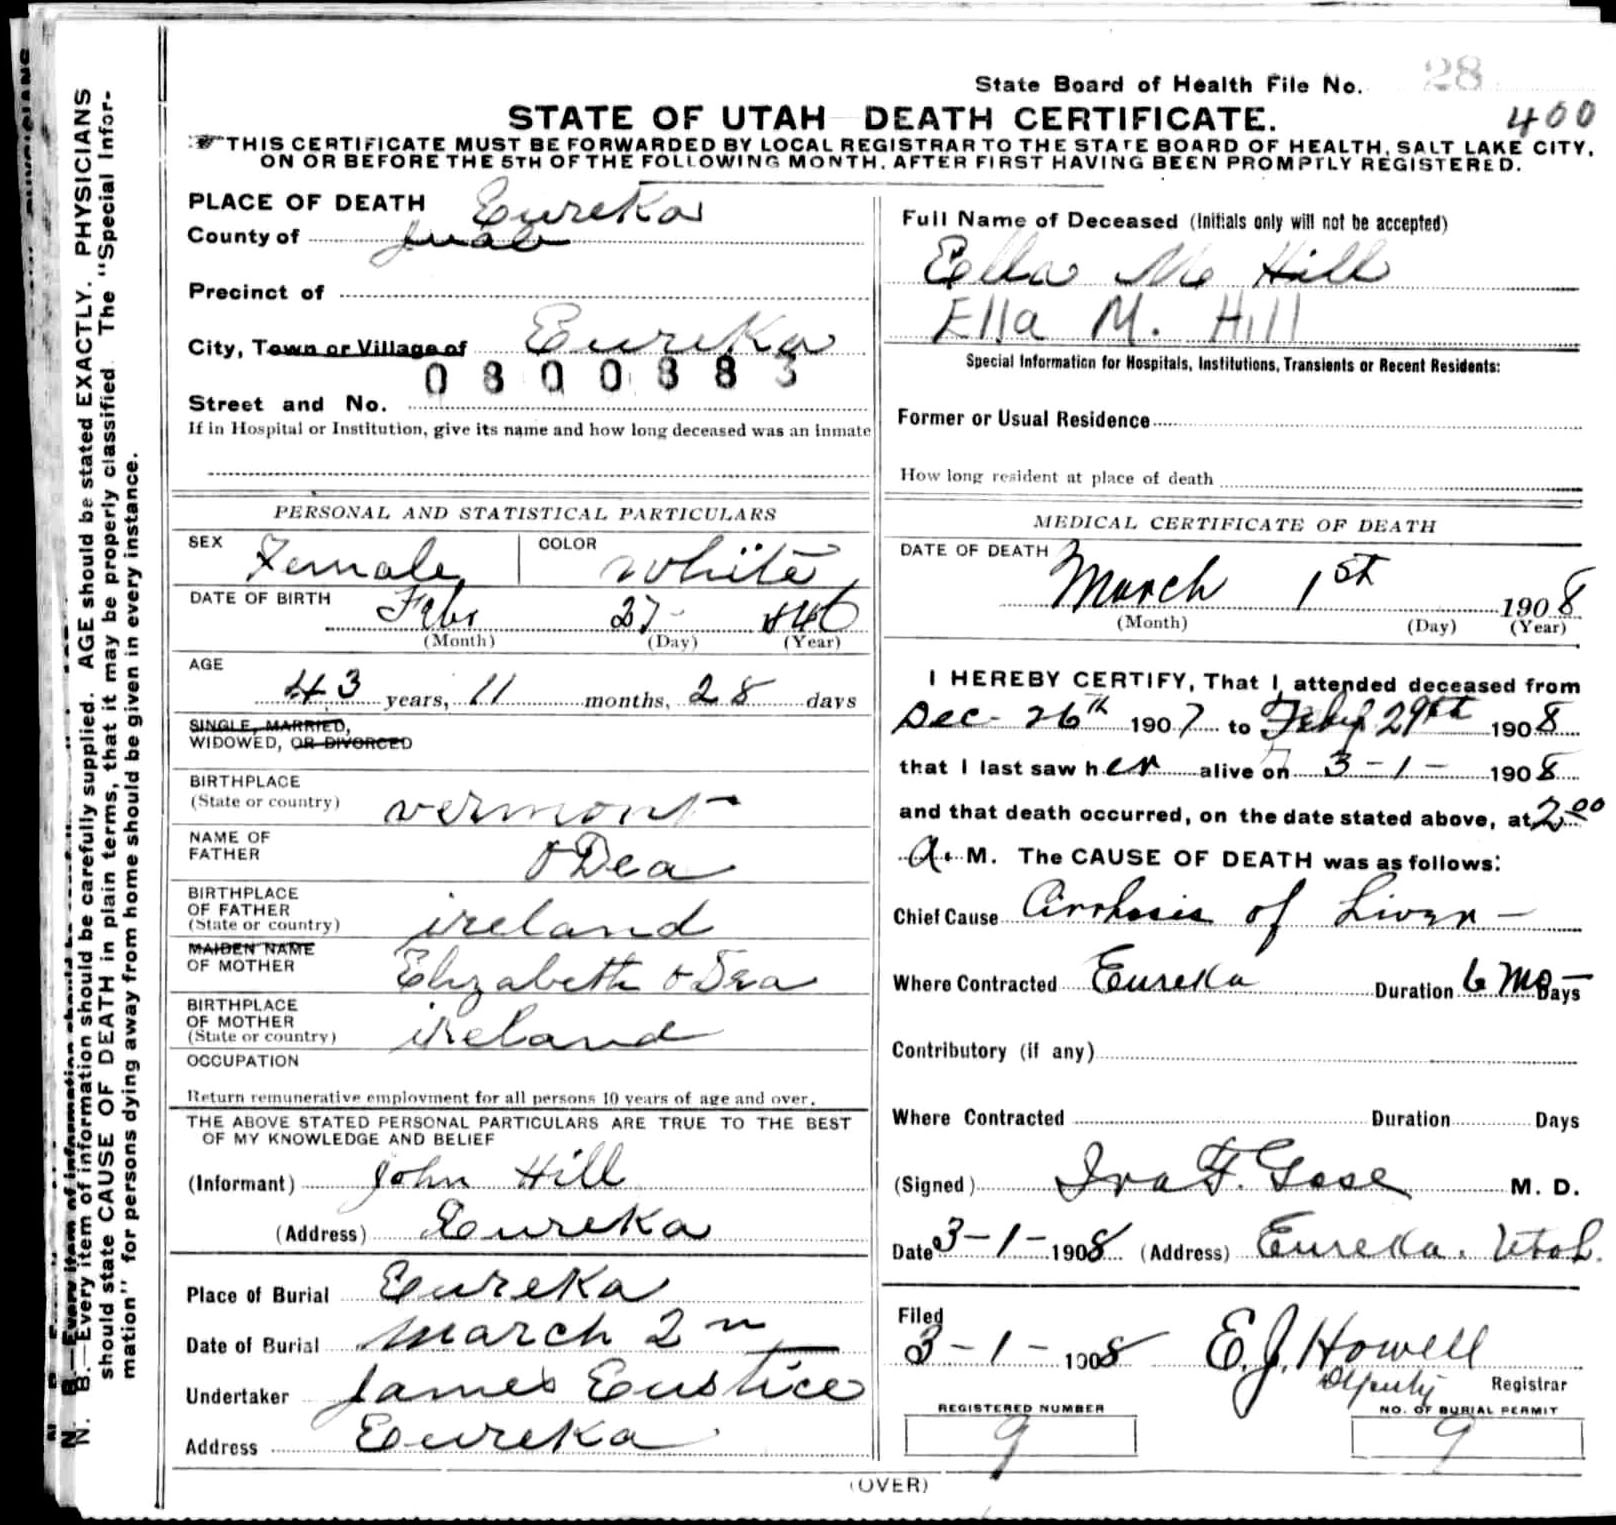 State Board of Health File No. 28
STATE OF UTAH DEATH CERTIFICATE.
400
THIS CERTIFICATE MUST BE FORWARDED BY LOCAL REGISTRAR TO THE STATE BOARD OF HEALTH, SALT LAKE CITY,
ON OR BEFORE THE 5TH OF THE FOLLOWING MONTH, AFTER FIRST HAVING BEEN PROMPTLY REGISTERED.
PLACE OF DEATH Eureka
County of Juab
Precinct of
City, Town or Village of Eureka
0800883
Street and No.
If in Hospital or Institution, give its name and how long deceased was an inmate
Full Name of Deceased (Initials only will not be accepted)
Ella M Hill
Ella M. Hill
Special Information for Hospitals, Institutions, Transients or Recent Residents:
Former or Usual Residence
How long resident at place of death
PERSONAL AND STATISTICAL PARTICULARS
SEX Female COLOR White
DATE OF BIRTH Febr 27 1846
(Month) (Day) (Year)
AGE
43 years, 11 months, 28 days
SINGLE, MARRIED,
WIDOWED, OR DIVORCED
BIRTHPLACE
(State or country) vermont
NAME OF
FATHER O Dea
BIRTHPLACE
OF FATHER
(State or country) ireland
MAIDEN NAME
OF MOTHER Elizabeth O Dea
BIRTHPLACE
OF MOTHER
(State or country) ireland
OCCUPATION
Return remunerative employment for all persons 10 years of age and over.
THE ABOVE STATED PERSONAL PARTICULARS ARE TRUE TO THE BEST
OF MY KNOWLEDGE AND BELIEF
(Informant) John Hill
(Address) Eureka
Place of Burial Eureka
Date of Burial March 2n
Undertaker James Eustice
Address Eureka
MEDICAL CERTIFICATE OF DEATH
DATE OF DEATH March 1st 1908
(Month) (Day) (Year)
I HEREBY CERTIFY, That I attended deceased from
Dec- 26th 1907 to Feby 29th 1908
that I last saw her alive on 3-1- 1908
and that death occurred, on the date stated above, at 2 00
A. M. The CAUSE OF DEATH was as follows:
Chief Cause Cirrhosis of Liver -
Where Contracted Eureka Duration 6 Mo- Days
Contributory (if any)
Where Contracted Duration Days
(Signed) Ira F. Gose M. D.
Date 3-1- 1908 (Address) Eureka. Utah.
Filed
3-1- 1908 E.J. Howell
Deputy Registrar
REGISTERED NUMBER NO. OF BURIAL PERMIT
9 9
(OVER)
N. B.—Every item of information should be carefully supplied. AGE should be stated EXACTLY. PHYSICIANS
should state CAUSE OF DEATH in plain terms, that it may be properly classified. The "Special Infor-
mation" for persons dying away from home should be given in every instance.